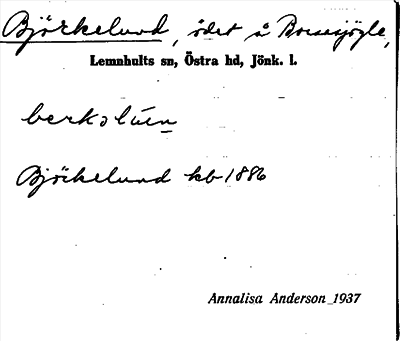 Björkelund, ödet å Boressjögle,
Lemnhults sn, Östra hd, Jönk. l.
Björkelund kb 1886
Annalisa Anderson 1937